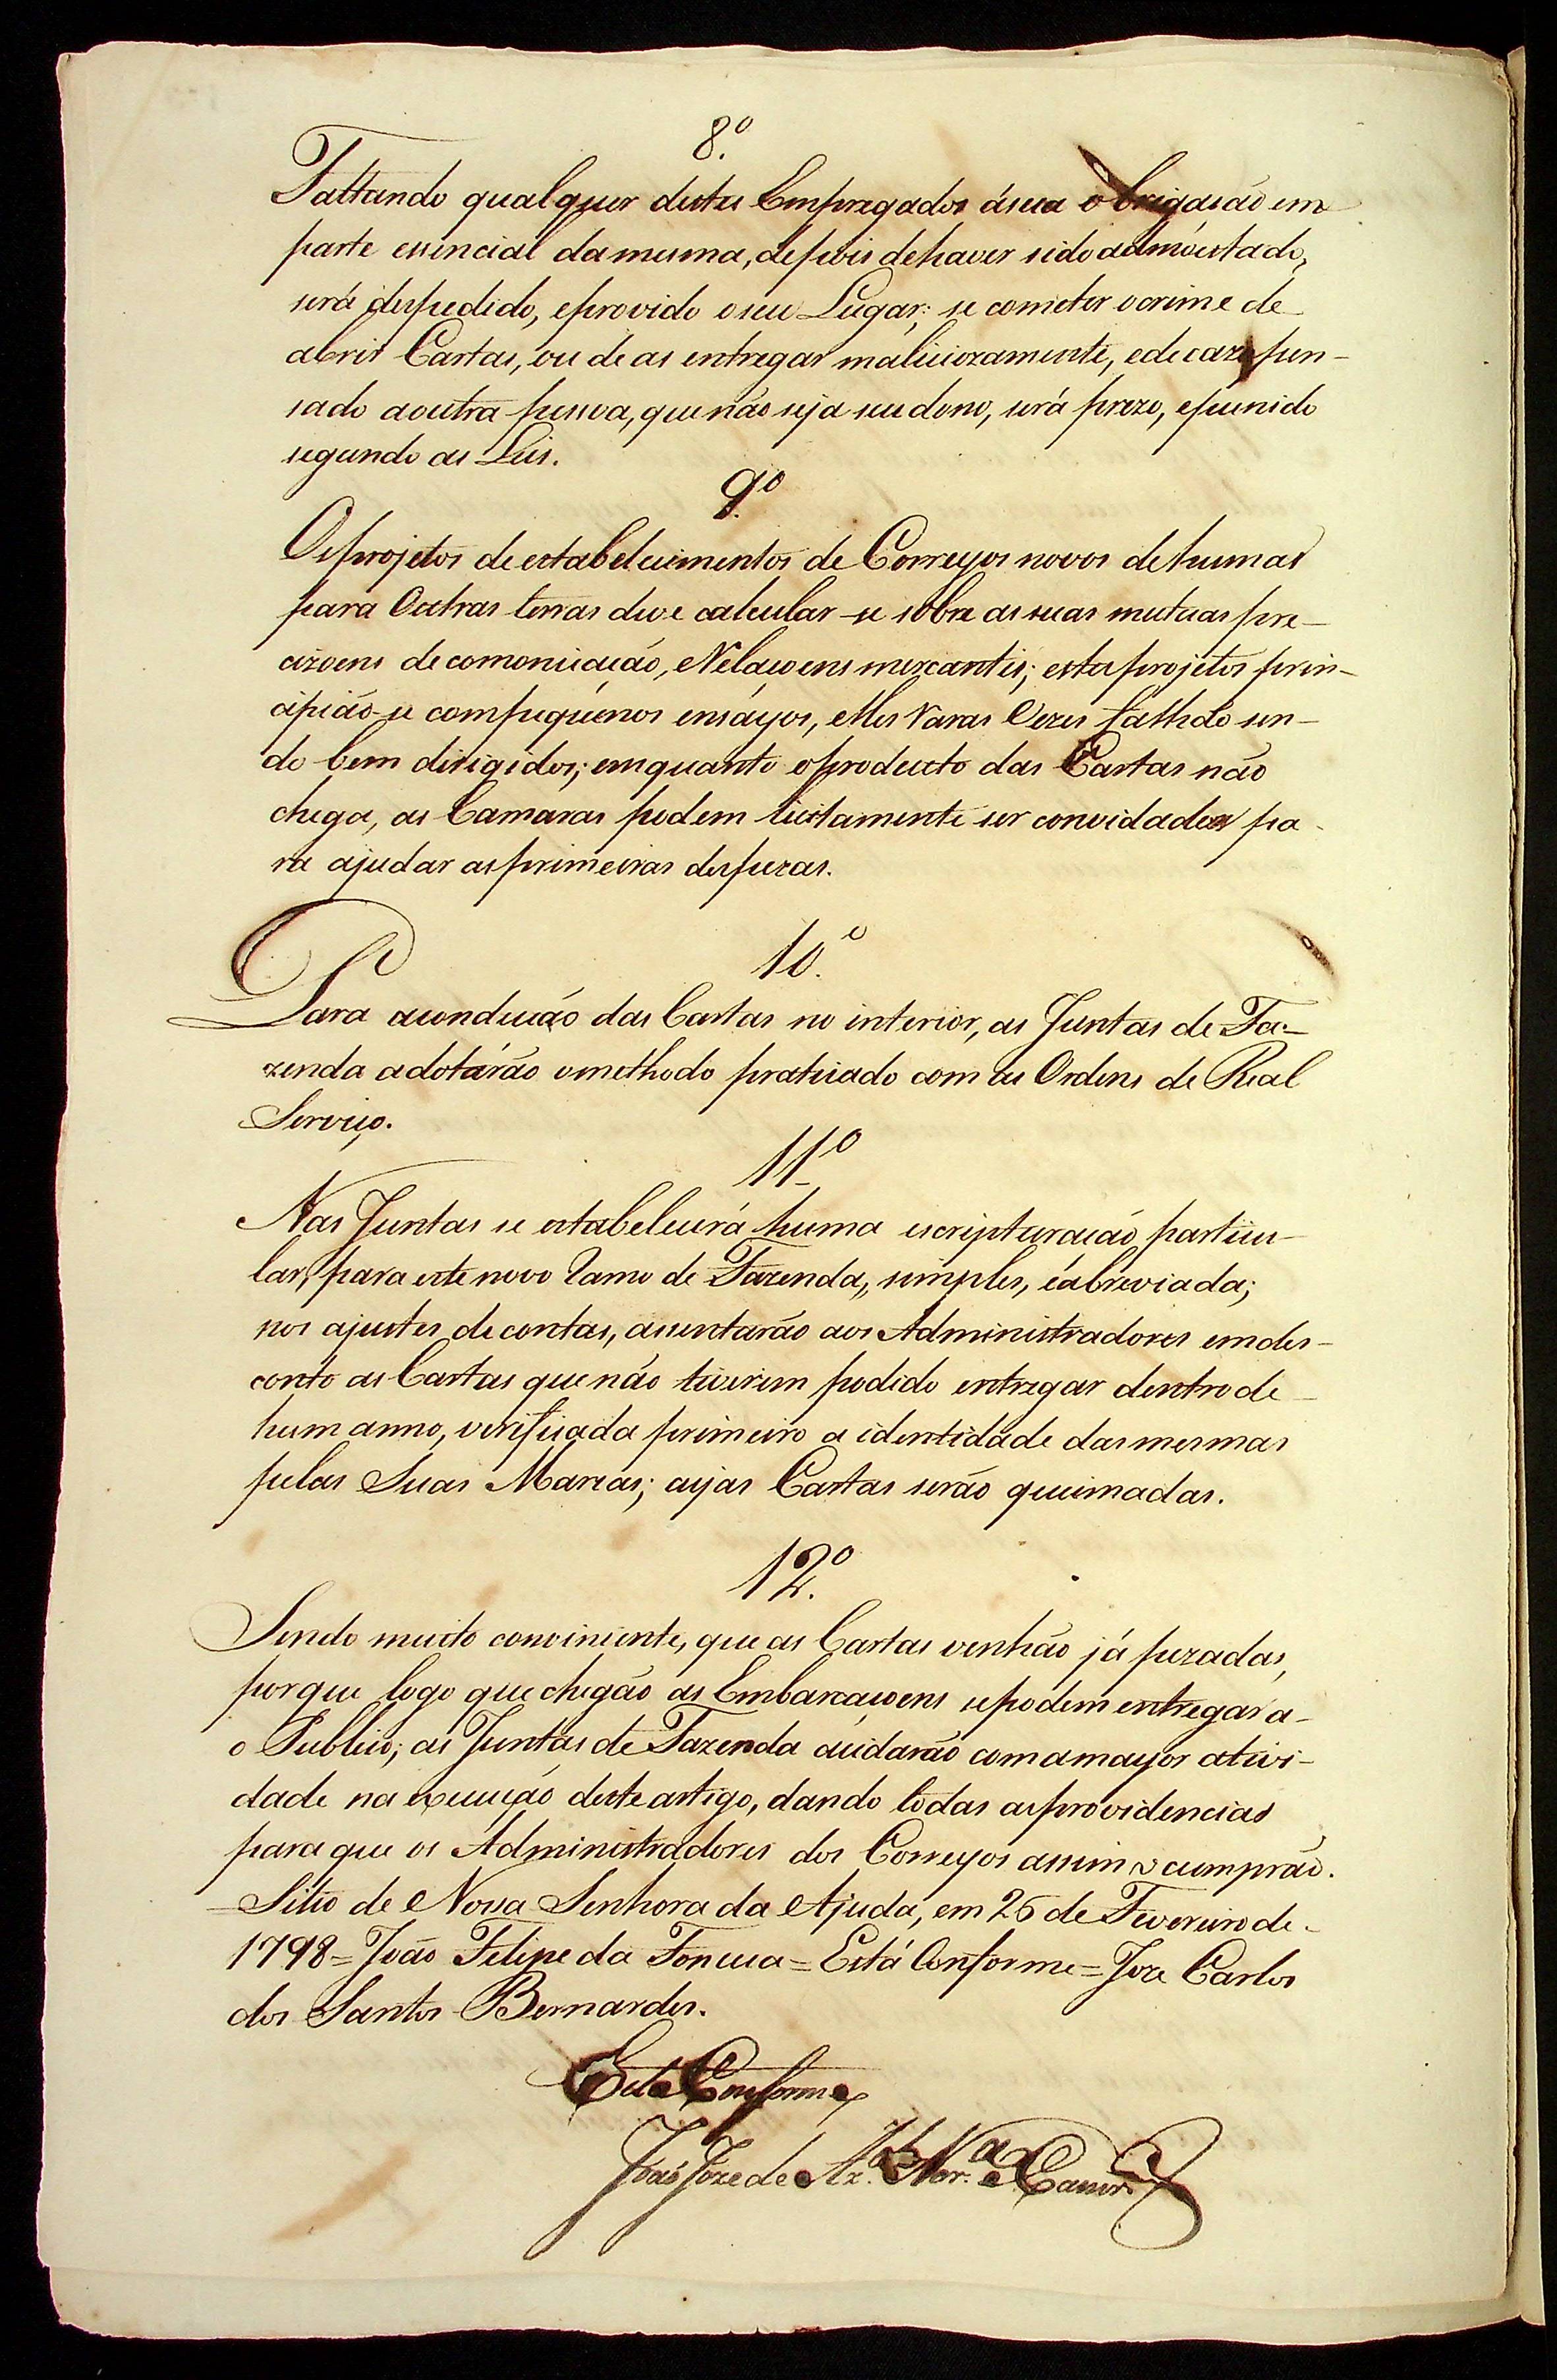 8.º
Faltando qualquer destes Empregados ásua obrigasáo em
parte essencial damesma, depois dehaver sido admoestado,
será despedido, eprovido oseu Lugar; se cometer ocrime de
abrir Cartas, ou de as entregar maliciozamente, ede cazo pen-
sado aoutra pessoa, que não seja seu dono, será prezo, epunido
segundo as Leis.
9.º
Os projetos de estabelecimentos de Correyos novos de humas
para Outras terras deve calcular-se sobre as suas mutuas pre-
cizoens de comonicação, e Relaçoens mercantis; estes projetos prin-
cipião-se com pequenos ensáyos, elles Raras Vezes falhão sen-
do bem dirigidos; emquanto oproducto das Cartas não
chega, as Camaras podem licitamente ser convidadas pa-
ra ajudar as primeiras despezas.
10.º
Para acondução das Cartas no interior, as Juntas de Fa-
zenda adotárão omethodo praticado com as Ordens de Real
Serviço.
11.º
Nas Juntas se estabelecerá huma escripturação particu-
lar, para este novo Ramo de Fazenda, simples, éabreviada;
nos ajustes de contas, assentarão aos Administradores em des-
conto as Cartas que não tiverem podido entregar dentro de
hum anno, verificada primeiro a identidade das mesmas
pelas Suas Marcas; cujas Cartas serão queimadas.
12.º
Sendo muito conviniente, que as Cartas venhão já pezadas,
porque logo que chegão as Embarcaçoens se podem entregar a-
o Publico; as Juntas de Fazenda cuidarão com amayor ativi-
dade na execução deste artigo, dando todas as providencias
para que os Administradores dos Correyos assim o cumprão.
Sitio de Nossa Senhora da Ajuda, em 26 de Fevereiro de
1798 = João Felipe da Fonceca = Está Conforme = Joze Carlos
dos Santos Bernardes.
Está Conforme
João Joze de